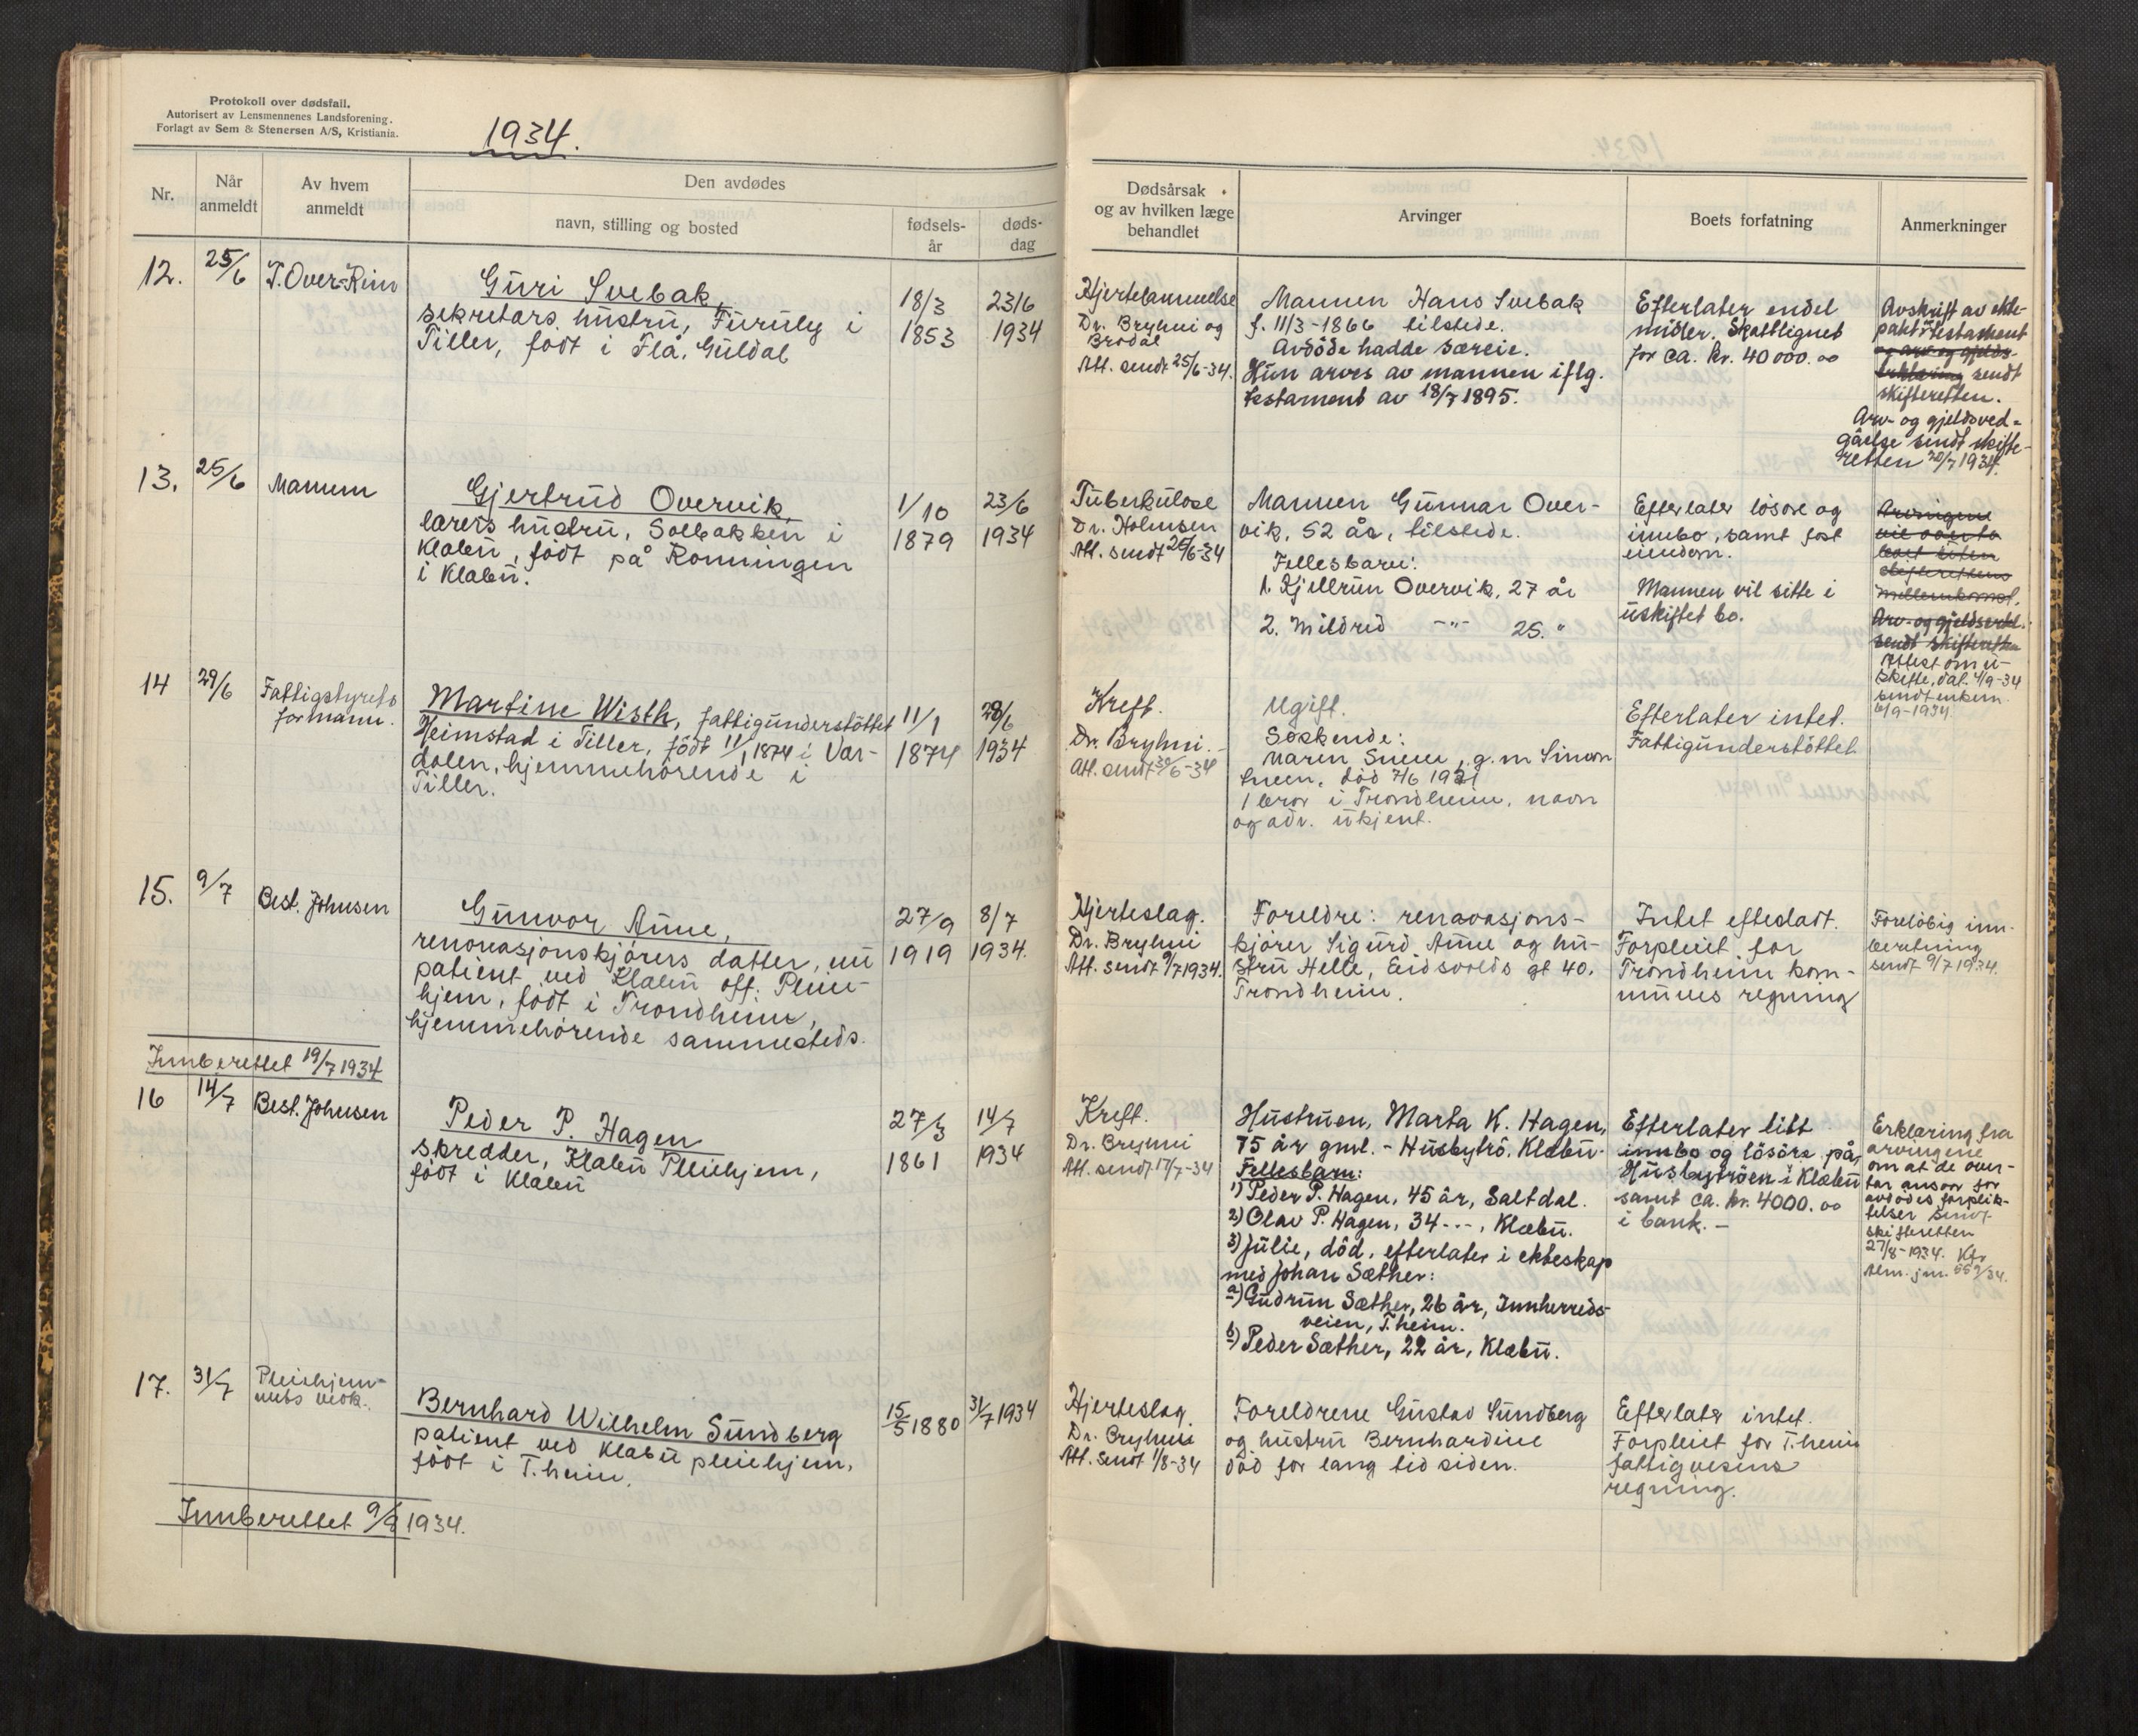 Protokoll over dødsfall.
Autorisert av Lensmennenes Landsforening.
Forlagt av Sem & Stenersen A/S, Kristiania.
1934.
Nr.
Når
anmeldt
Av hvem
anmeldt
Den avdødes
navn, stilling og bosted
fødsels-
år
døds-
dag
Dødsårsak
og av hvilken læge
behandlet
Arvinger
Boets forfatning
Anmerkninger
12.
25/6
T. Over-Rein
Guri Svebak,
sekretærs hustru, Furuly i
Tiller, född i Flå, Guldal
18/3
1853
23/6
1934
Hjertelammelse
Dr. Bryhni og
Brodal
Att. sendt 25/6-34.
Mannen Hans Svebak
f. 11/3-1866 tilstede.
Avdöde hadde særeie.
Hun arves av mannen iflg.
testament av 18/7 1895.
Efterlater endel
midler. Skattlignet
for ca. kr. 40 000.00
Avskrift av ekte-
pakt & testament
og arv og gjelds-
erklæring sendt
skifteretten.
Arv- og gjeldsved-
gåelse sendt skifte-
retten 20/7 1934.
13.
25/6
Mannen
Gjertrud Overvik,
lærers hustru, Solbakken i
Klæbu, födt på Rönningen
i Klæbu.
1/10
1879
23/6
1934
Tuberkulose
Dr. Holmsen
Att. sendt 25/6-34
Mannen Gunnar Over-
vik, 52 år, tilstede.
Fellesbarn:
1. Kjellrun Overvik, 27 år
2. Mildrid -"- 25. "
Efterlater lösöre og
innbo, samt fast
eiendom.
Mannen vil sitte i
uskiftet bo.
Arvingene
vil overta
boet uten
skifterettens
mellemkomst.
Arv- og gjeldserkl.
sendt skifteretten
Attest om u-
skifte, dat. 4/9-34
sendt enkem.
6/9-1934.
14
29/6
Fattigstyrets
formann.
Martine Wisth, fattigunderstöttet
Heimstad i Tiller, födt 11/1 1874 i Vær-
dalen, hjemmehörende i
Tiller.
11/1
1874
28/6
1934
Kreft.
Dr. Bryhni.
Att. sendt 30/6-34
Ugift.
Söskende:
Maren Sneen, g.m. Simon
Sneen, död 7/6 1921
1 bror i Trondheim, navn
og adr. ukjent.
Efterlater intet.
Fattigunderstöttet
15.
9/7
Best. Johnsen
Gunvor Aune,
renovasjonskjörers datter, nu
patient ved Klæbu off. Pleie-
hjem, födt i Trondheim,
hjemmehörende sammesteds.
27/9
1919
8/7
1934.
Hjerteslag.
Dr. Bryhni
Att. sendt 9/7 1934.
Foreldre: renovasjons-
kjörer Sigurd Aune og hu-
stru Helle, Eidsvolds gt 40.
Trondheim.
Intet efterladt.
Forpleiet for
Trondheim kom-
munes regning
Forelöbig inn-
beretning
sendt 9/7 1934.
Innberettet 19/7 1934
16
14/7
Best. Johnsen
Peder P. Hagen
skredder, Klæbu Pleiehjem,
födt i Klæbu
27/3
1861
14/7
1934
Kreft.
Dr. Bryhni
Att. sendt 17/7-34
Hustruen, Marta K. Hagen,
75 år gml. - Husbytrö. Klæbu.
Fellesbarn:
1) Peder P. Hagen, 45 år, Saltdal.
2) Olav P. Hagen, 34 -"-, Klæbu.
3) Julie, död, efterlater i ekteskap
med Johan Sæther:
a) Gudrun Sæther, 26 år, Innherreds-
veien, T.heim.
b) Peder Sæther, 22 år, Klæbu.
Efterlater litt
innbo og lösöre på
Husbytröen i Klæbu
samt ca. kr. 4000.00
i bank. -
Erklæring fra
arvingene
om at de over-
tar ansvar for
avdödes forplik-
telser sendt
skifteretten
27/8-1934. Kfr
Alm. jnr. 559/34.
17.
31/7
Pleiehjem-
mets vedk.
Bernhard Wilhelm Sundberg
patient ved Klæbu pleiehjem,
födt i T.heim.
15/5 1880
31/7 1934
Hjerteslag.
Dr. Bryhni
Att. sendt 1/8-34
Foreldrene Gustav Sundberg
og hustru Bernhardine
död for lang tid siden.
Efterlater intet.
Forpleiet for T.heim
fattigvesens
regning.
Innberettet 9/8 1934.